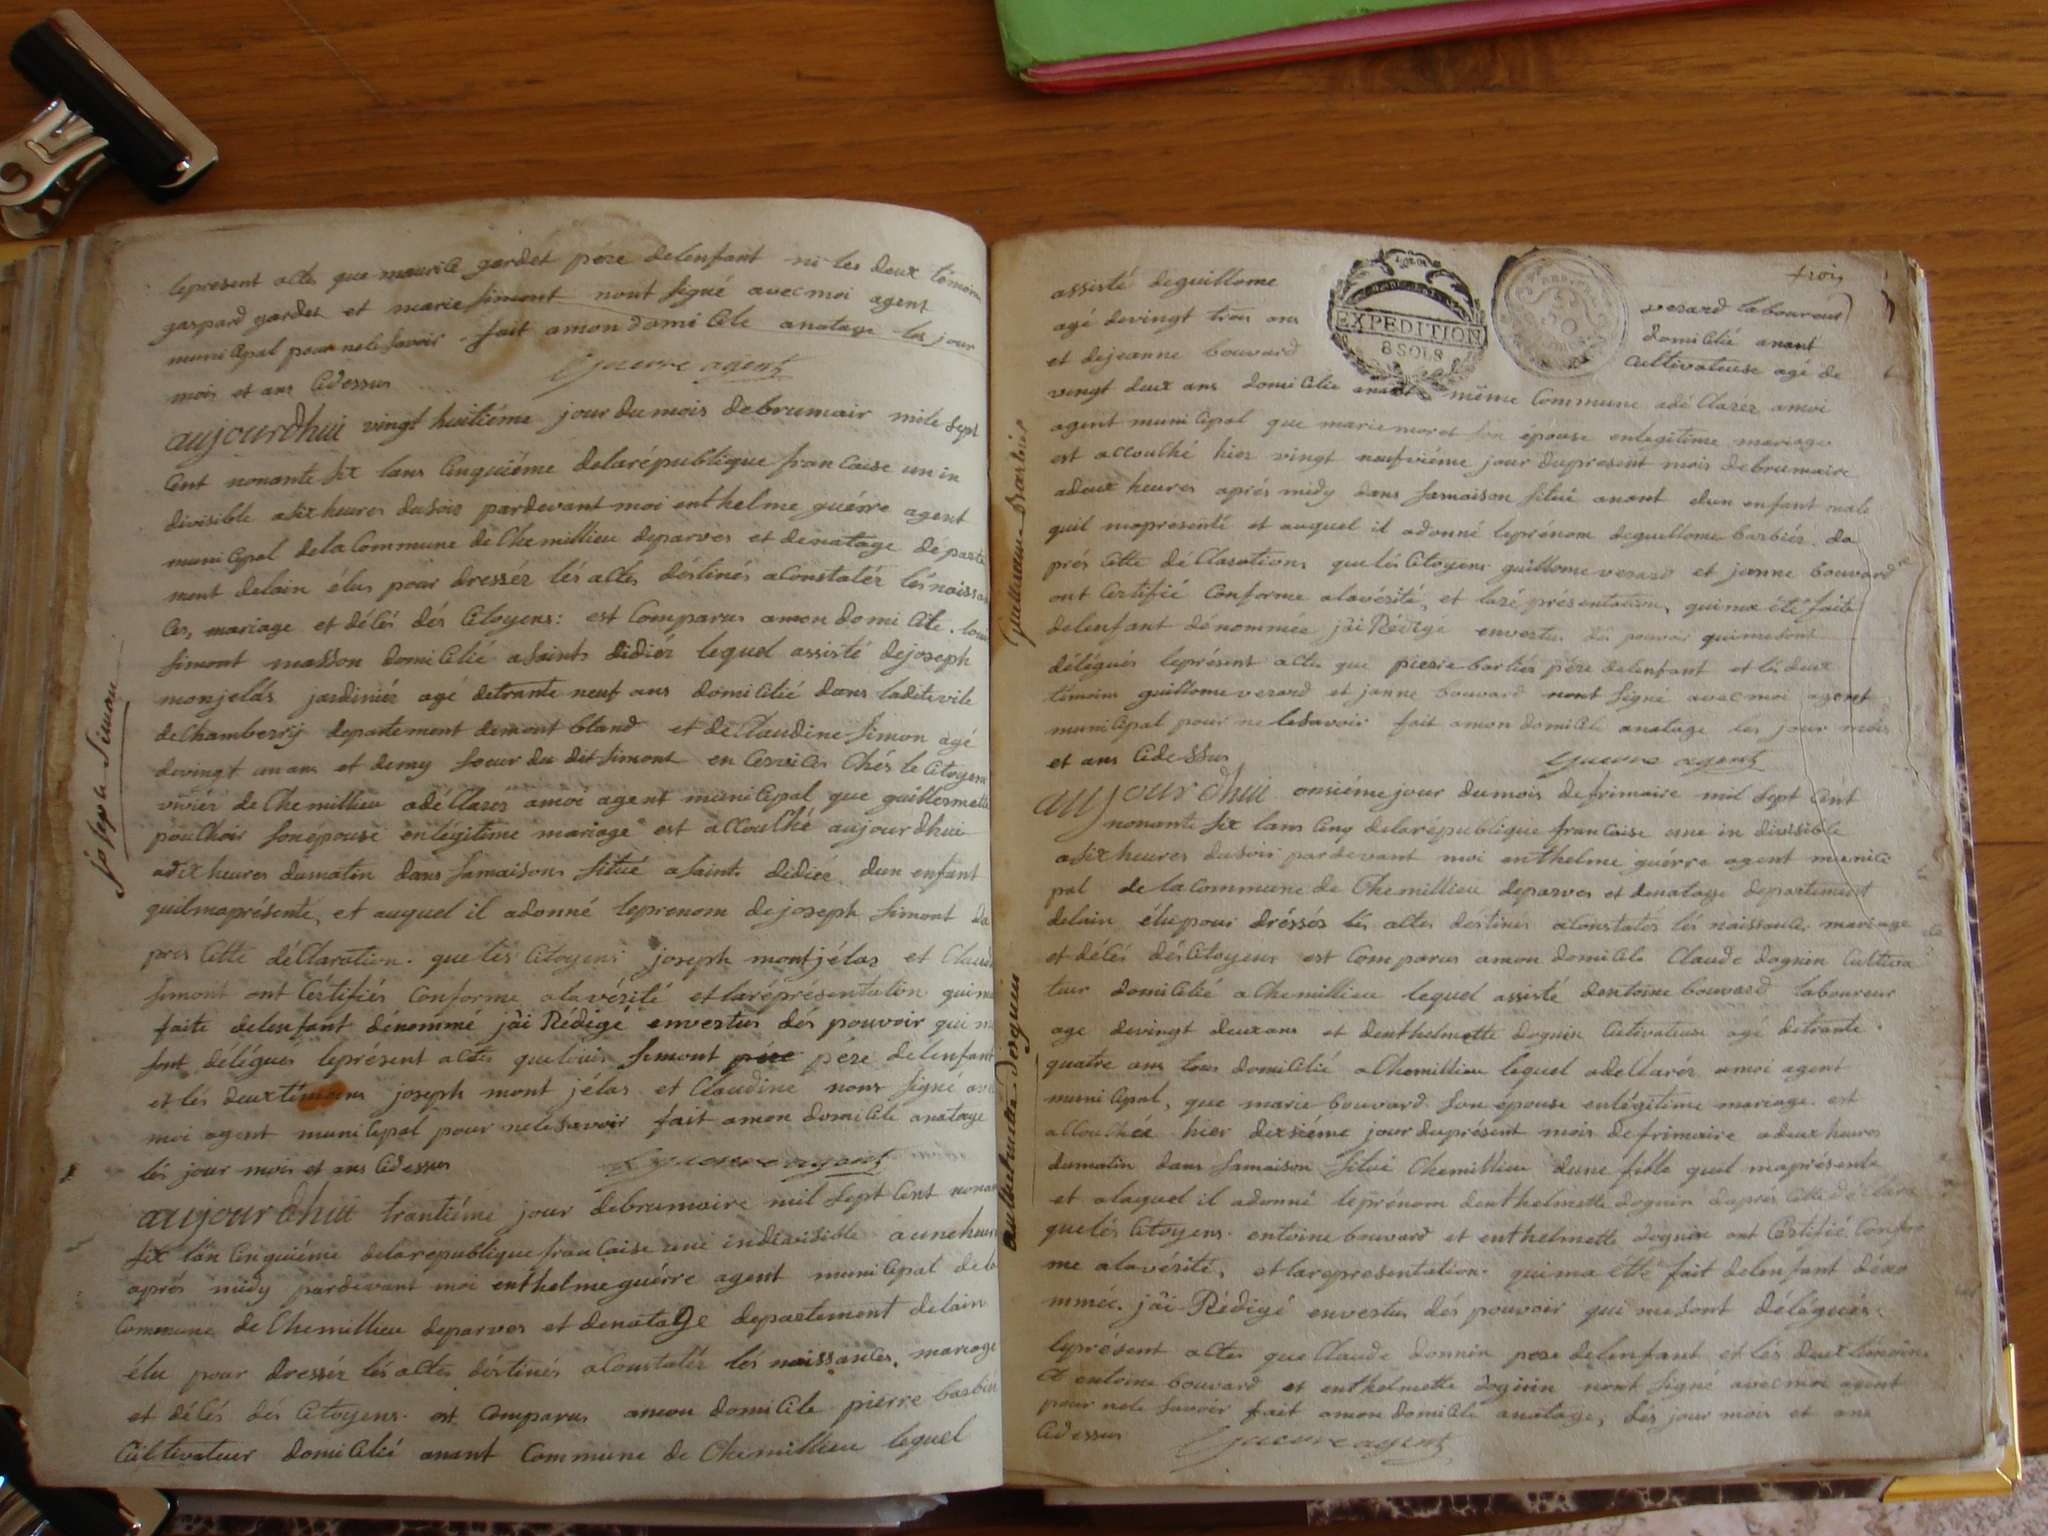 lepresent acte que maurice gardet pére delenfant ni les deux témoins
gaspard gardet et marie simont nont signé avec moi agent
municipal pour nelesavoir fait amon domicile anatage les jour
mois et ans Cidessus
Guerre agent
aujourdhui vingt huitiéme jour du mois debrumair mile sept
Cent nonante six lans Cinquiéme delarépublique francaise un in
divisible asixheures dusoir pardevant moi enthelme guérre agent
municipal dela Commune de Chemillieu deparves et denatage départe
ment delain élus pour dressér lés actes déstinés aConstatér lés naissan
Ces, mariage et décés dés Citoyens: est Comparus amon domicile. louis
simont masson domicilié asaint didiér lequel assisté dejoseph
monjelás jardiniér agé detrante neuf ans domicilié dans ladite vile
deChamberrij departement demont bland et de Claudine simon agé
devingt un ans et demy soeur du dit simont en Cervices Chés le Citoyens
viviér de Chemillieu adéClarér amoi agent municipal que guillermette
pouChoir sonepouse enlégitime mariage est accouché aujourdhui
adix heures dumatin dans samaison situé asaint didiée dun enfant
quilmaprésenté, et auquel il adonné leprenom dejoseph simont da
prés Cette déClaration. que lés Citoyens joseph montjélas et Claud
simont ont Cértifiés Conforme alavérité et laréprésentation quima
faite delenfant dénommé jài Rédigé envertus dés pouvoir qui m
sont délégues leprésent actes que louis simont pére délenfant
et lés deux témoins joseph mont jélas et Claudine nont signé av
moi agent municipal pour nelesavoir fait amon domicile anatage
lés jour mois et ans Cidessus
Guerre agent
joseph Simon
aujourdhui trantiéme jour debrumaire mil sept Cent nonan
six lan Cinquiéme delarepublique francaise une indivisible aune heure
aprés midy pardevant moi enthelme guérre agent municipal dela
Commune de Chemillieu deparves et denatage departement delain
élu pour dressér lés actes déstinés aConstatér lés naissances, mariage
et décés dés Citoyens. est Comparus amon domicile pierre barbiér
Cultivateur domicilié anant Commune de Chemillieu lequel
trois
assisté deguillome verard laboureur
agé devingt trois ans domicilié anant
et dejeanne bouvard Cultivateuse agé de
EXPEDITION
8 SOLS
vingt deux ans domicilié anant même Commune adéClarér amoi
agent municipal que marie moret son épouse enlegitime mariage
est accouché hier vingt neufviéme jour dupresent mois debrumaire
adeux heures aprés midy dans samaison situé anant dun enfant male
quil mapresenté et auquel il adonné leprénom deguillome barbiér da
prés Cette déClarations que lés Citoyens guillome verard et janne bouvard
ont Certifié Conforme alavérité, et laré présentation, quima été faite
delenfant dénommée jài Rédigé envertus dés pouvoir quimesont
délégués leprésent acte que pierre barbiér pére delenfant et lés deux
témoins guillome verard et janne bouvard nont signé avec moi agent
municipal pour ne lesavoir fait amon domicile anatage les jour mois
et ans Cidessus
Guerre agent
Guilleaume Barbier
aujourdhui onsiéme jour dumois defrimaire mil sept Cent
nonante six lans Cinq delarépublique francaise une in divissible
asix heures dusoir pardevant moi enthelme guérre agent munici
pal de la Commune de Chemillieu deparves et denatage departement
delain élu pour dréssér lés actes destinés aConstatér lés naissance, mariage
et décés dés Citoyens est Comparus amon domicile Claude dognin Cultiva
teur domicilié achemillieu lequel assisté dantoine bouvard laboureur
age devingt deux ans et denthelmette dognin Cultivateuse agé detrante
quatre ans tous domicilié aChemillieu lequel adeClarér amoi agent
municipal, que marie bouvard son épouse enlégitime mariage est
accouchée hier dixsiéme jour duprésent mois defrimaire adeux heures
dumatin dans samaison situé Chemillieu dune fille quil maprésenté
et alaquel il adonné leprénom denthelmette dognin daprés Cette déClara
quelés Citoyens. entoine bouvard et enthelmette dognin ont Certifié Confor
me alavérité, et larepresentation. quima été fait delenfant déno
mmée. jài Rédigé envertus dés pouvoir qui mesont délégués.
leprésent actes que Claude donnin pere delenfant et lés deux témoins
entoine bouvard et enthelmette dognin nont signé avec moi agent
pour nele savoir fait amon domicile anatage, lés jour mois et ans
Cidessus
Guerre agent